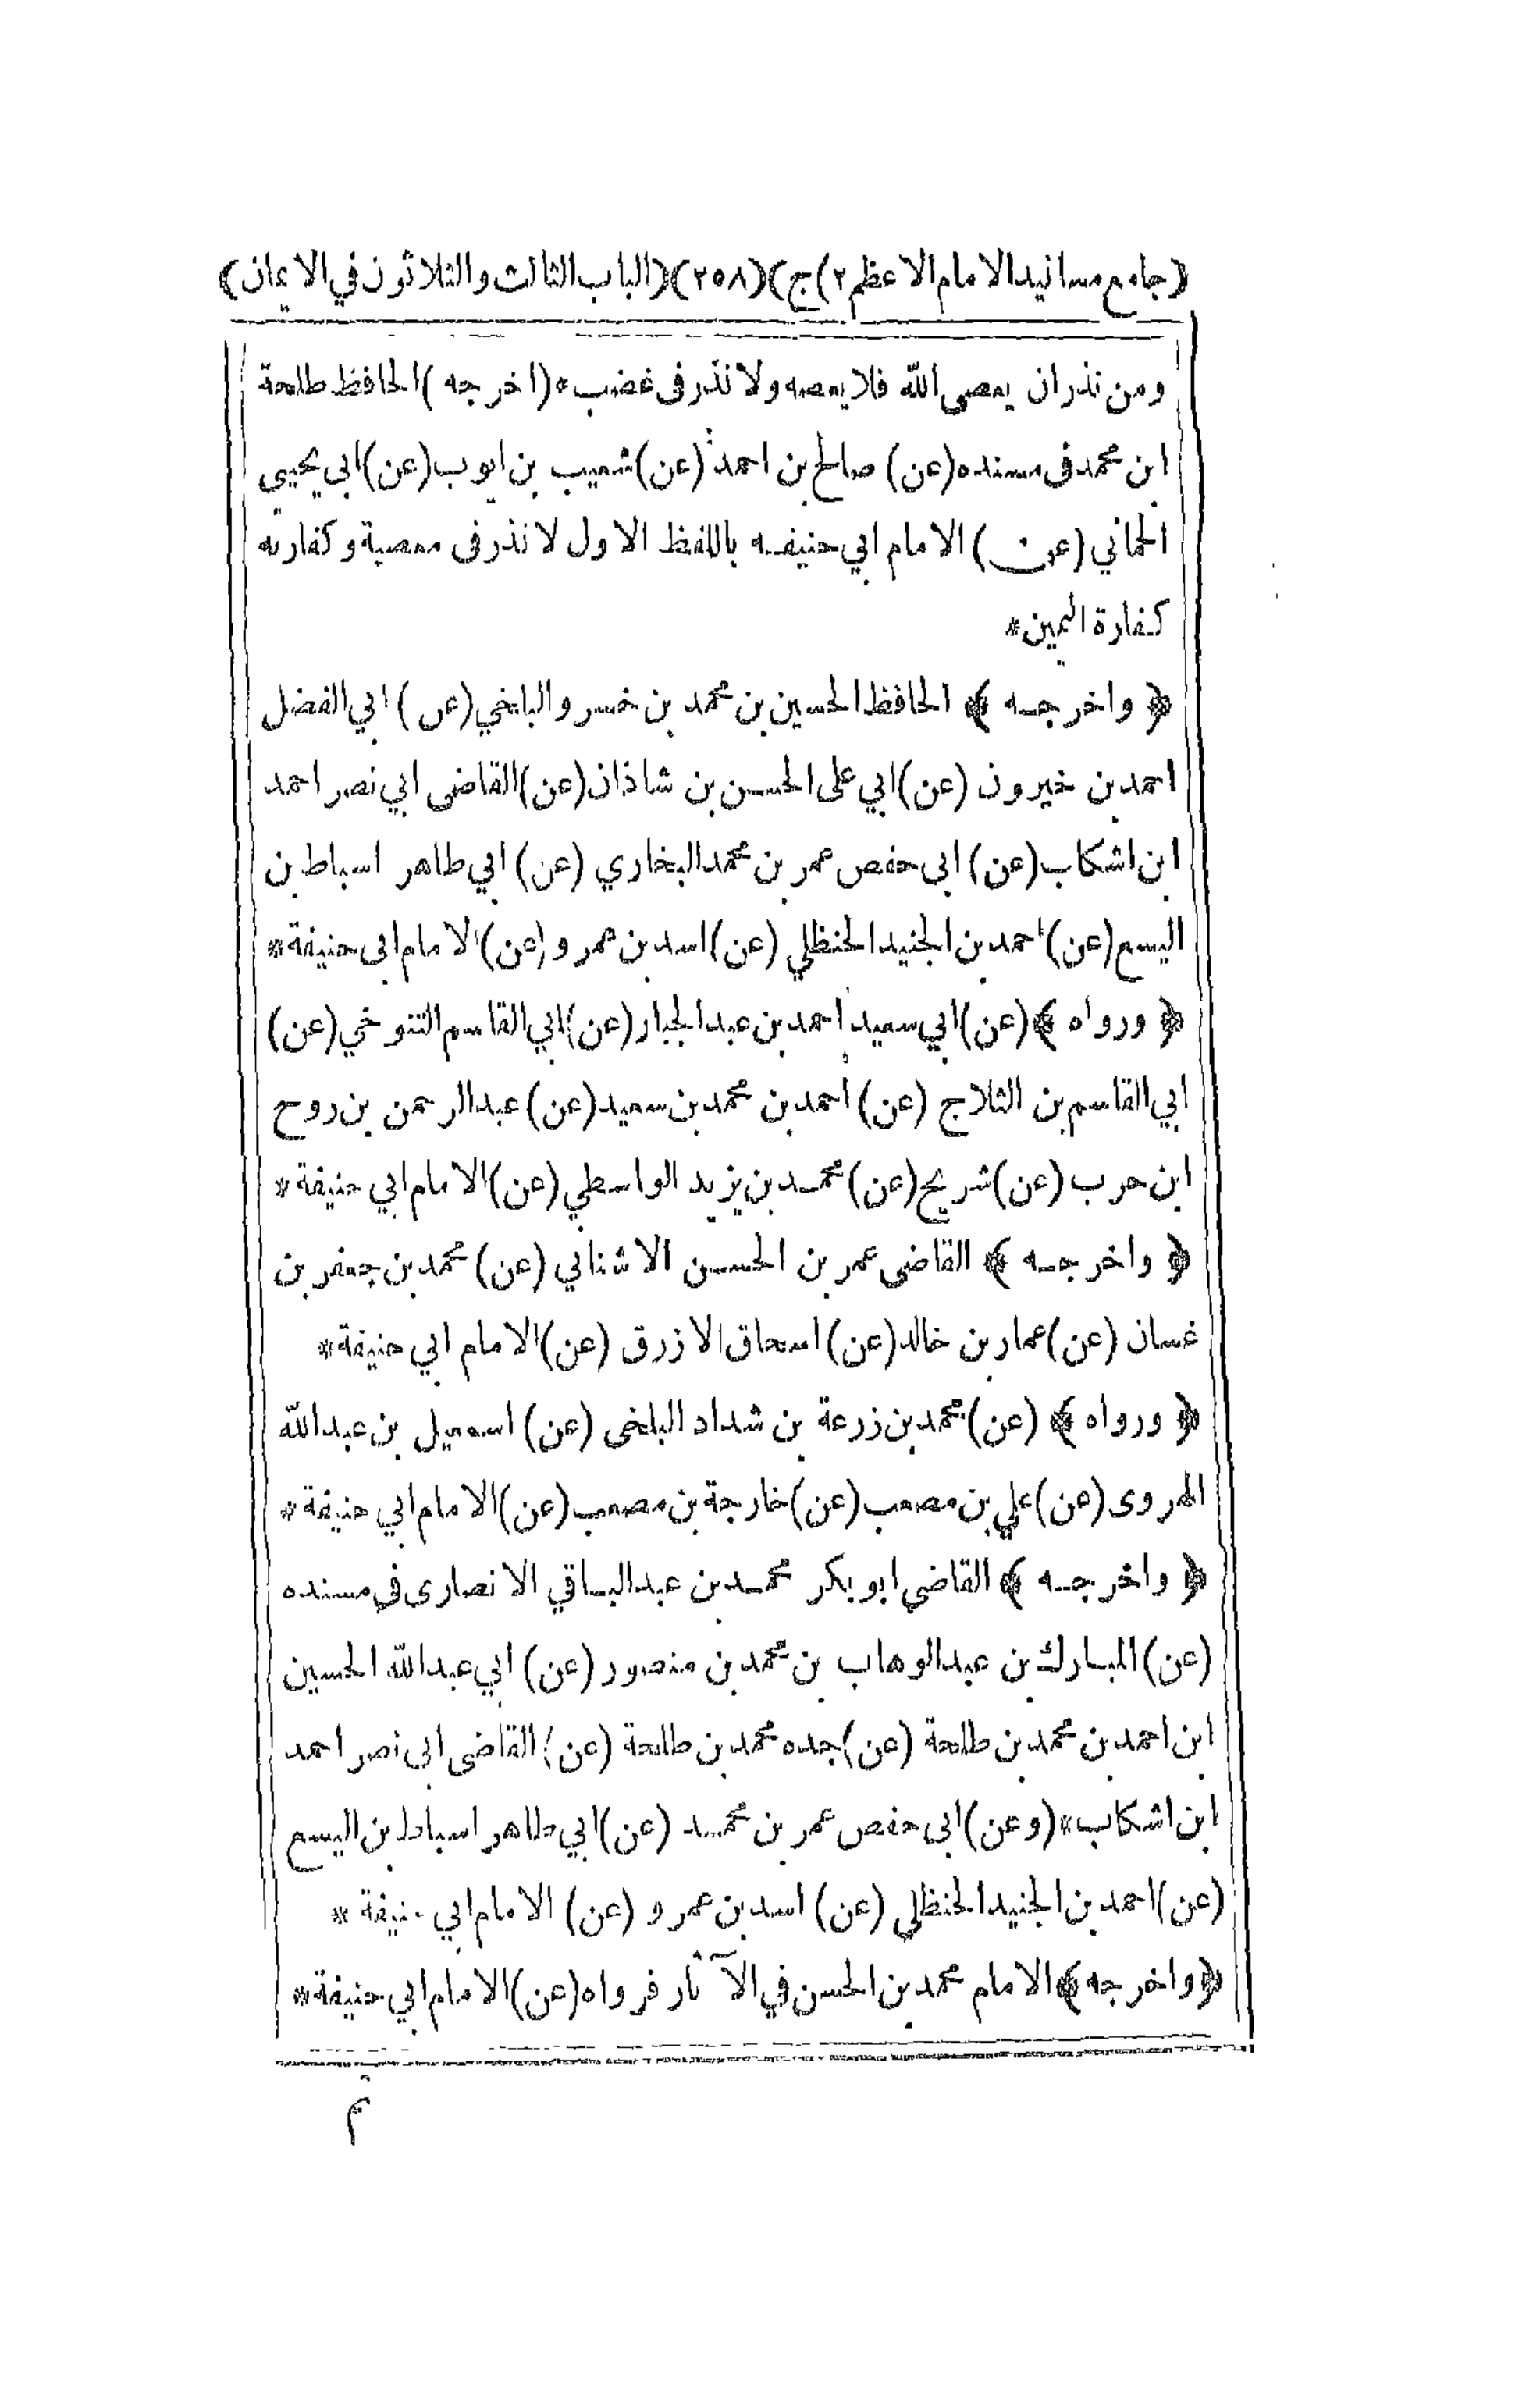 (جامع مسانيد الامام الاعظم ٢) ج) (٢٥٨) (الباب الثالث والثلاثون في الايمان)
ومن نذر ان يعصى الله فلا يعصه ولا نذر فى غضب* (اخرجه) الحافظ طلحة
ابن محمد فى مسنده (عن) صالح بن احمد (عن) شعيب بن ايوب (عن) ابي يحيى
الحماني (عن) الامام ابي حنيفه باللفظ الاول لا نذر فى معصية وكفارته
كفارة اليمين*
﴿ واخرجه ﴾ الحافظ الحسين بن محمد بن خسرو البلخي (عن) ابي الفضل
احمد بن خيرون (عن) ابي على الحسن بن شاذان (عن) القاضى ابي نصر احمد
ابن اشكاب (عن) ابى حفص عمر بن محمد البخاري (عن) ابي طاهر اسباط بن
اليسع (عن) احمد بن الجنيد الحنظلي (عن) اسد بن عمرو (عن) الامام ابى حنيفة*
﴿ ورواه ﴾ (عن) ابي سعيد احمد بن عبد الجبار (عن) ابي القاسم التنوخي (عن)
ابي القاسم بن الثلاج (عن) أحمد بن محمد بن سعيد (عن) عبد الرحمن بن روح
ابن حرب (عن) شريح (عن) محمد بن يزيد الواسطي (عن) الامام ابي حنيفة*
﴿ واخرجه ﴾ القاضى عمر بن الحسن الاشناني (عن) محمد بن جعفر بن
غسان (عن) عمار بن خالد (عن) اسحاق الازرق (عن) الامام ابي حنيفة*
﴿ ورواه ﴾ (عن) محمد بن زرعة بن شداد البلخى (عن) اسمعيل بن عبد الله
الهروى (عن) علي بن مصعب (عن) خارجة بن مصعب (عن) الامام ابي حنيفة*
﴿ واخرجه ﴾ القاضي ابو بكر محمد بن عبد الباقي الانصارى في مسنده
(عن) المبارك بن عبد الوهاب بن محمد بن منصور (عن) ابي عبد الله الحسين
ابن احمد بن محمد بن طلحة (عن) جده محمد بن طلحة (عن) القاضى ابى نصر احمد
ابن اشكاب* (وعن) ابى حفص عمر بن محمد (عن) ابي طاهر اسباط بن اليسع
(عن) احمد بن الجنيد الحنظلي (عن) اسد بن عمرو (عن) الامام ابي حنيفة*
﴿واخرجه﴾ الامام محمد بن الحسن في الآثار فرواه (عن) الامام ابي حنيفة*